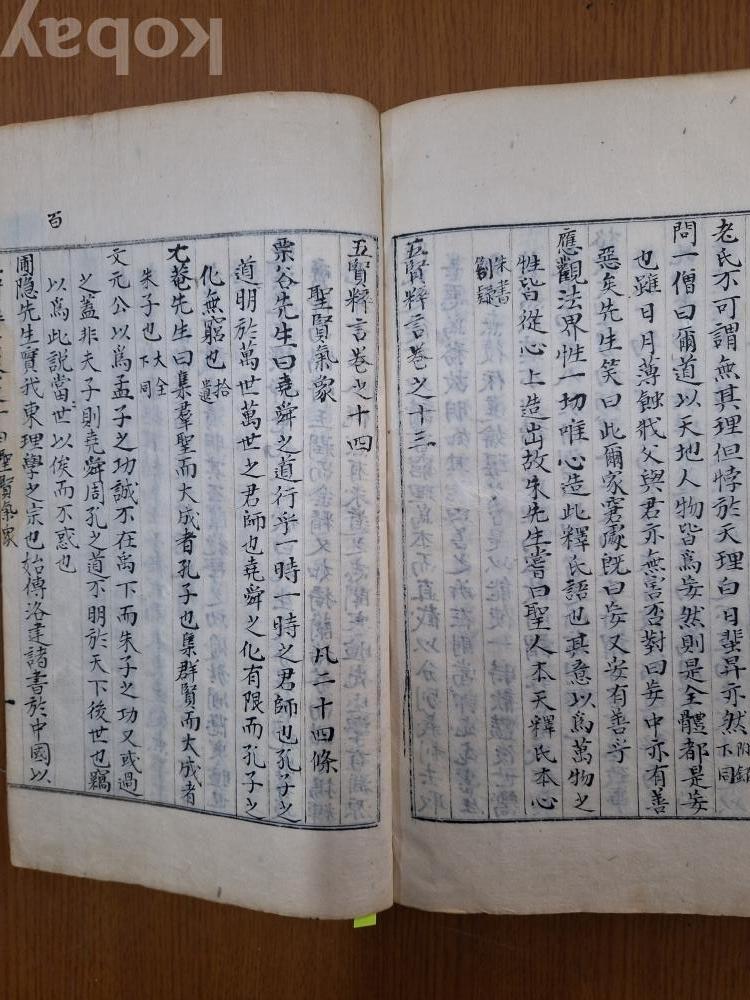 kobay
老氏不可謂無其理但悖於天理白輩昇亦然附錄下同
問一僧曰爾道以天地人物皆爲妄然則是全體都是妄
也雖日月薄蝕弒父與君亦無害否對曰妄中亦有善
惡矣先生笑曰此爾家窘處旣曰妄又安有善乎
應觀法界性一切唯心造此釋氏語也其意以爲萬物之
性皆從心上造出故朱先生嘗曰聖人本天釋氏本心
朱書劄疑
五賢粹言卷之十三
五賢粹言卷之十四
聖賢氣象 凡二十四條
栗谷先生曰堯舜之道行乎一時一時之君師也孔子之
道明於萬世萬世之君師也堯舜之化有限而孔子之
化無窮也拾遺
尤菴先生曰集羣聖而大成者孔子也集群賢而大成者
朱子也大全下同
文元公以爲孟子之功誠不在禹下而朱子之功又或過
之蓋非夫子則堯舜周孔之道不明於天下後世也竊
以爲此說當世以俟而不惑也
圃隱先生實我東理學之宗也始傳洛建諸書於中國以
聖賢氣象
百